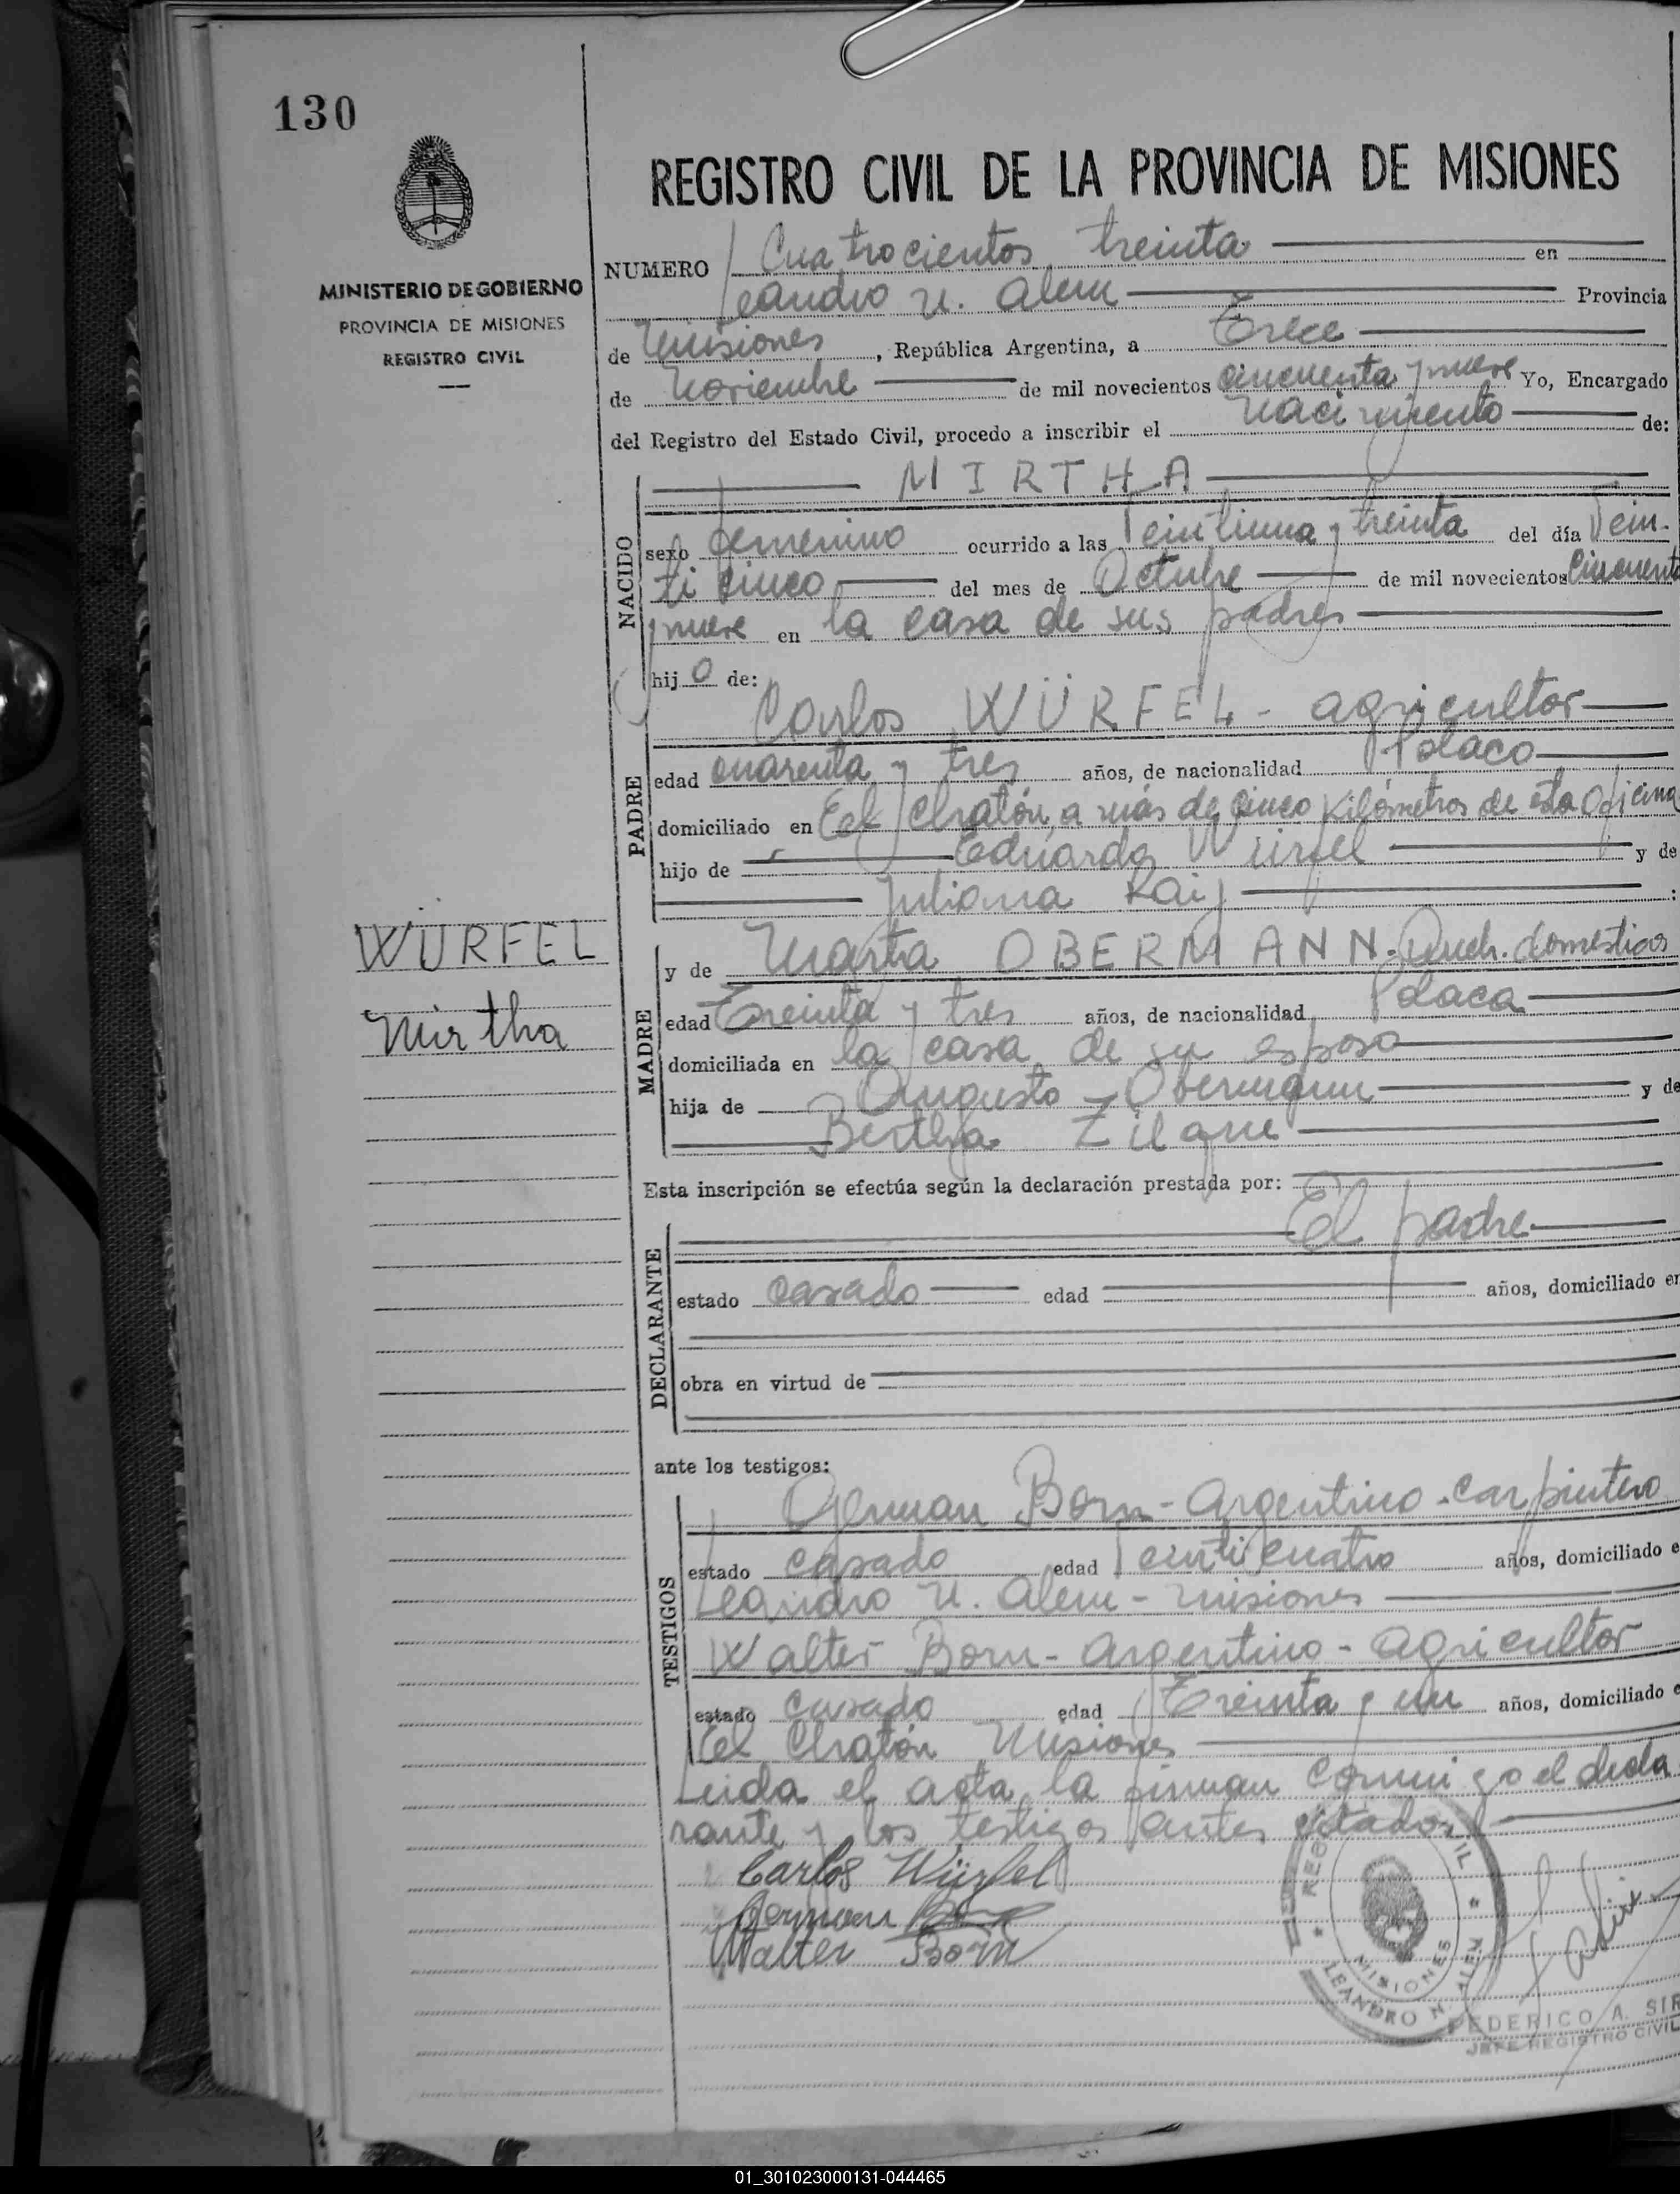 130
MINISTERIO DE GOBIERNO
PROVINCIA DE MISIONES
REGISTRO CIVIL
REGISTRO CIVIL DE LA PROVINCIA DE MISIONES
NUMERO Cuatrocientos treinta en
Leandro N. Alem Provincia
de Misiones, República Argentina, a Trece
de Noviembre de mil novecientos cincuenta y nueve Yo, Encargado
del Registro del Estado Civil, procedo a inscribir el Nacimiento de:
MIRTHA
NACIDO
sexo femenino ocurrido a las Veintiuna y treinta del día Vein-
ti cinco del mes de Octubre de mil novecientos Cincuenta
y nueve en la casa de sus padres
hijo de:
PADRE
Carlos WÜRFEL - agricultor
edad cuarenta y tres años, de nacionalidad Polaco
domiciliado en El Chatón, a más de cinco Kilómetros de esta Oficina
hijo de Eduardo Würfel y de
Juliana Raij :
WÜRFEL
Mirtha
MADRE
y de Marta OBERMANN. Queh. domesticos
edad Treinta y tres años, de nacionalidad Polaca
domiciliada en la casa de su esposo
hija de Augusto Obermann y de
Bertha
Esta inscripción se efectúa según la declaración prestada por:
DECLARANTE
El padre
estado casado edad años, domiciliado en
obra en virtud de
ante los testigos:
TESTIGOS
German Born - Argentino - Carpintero
estado casado edad Veinticuatro años, domiciliado e
Leandro N. Alem - Misiones
Walter Born - Argentino - Agricultor
estado casado edad Treinta y un años, domiciliado e
El Chatón Misiones
Leida el acta, la firman conmigo el decla
rante y los testigos antes citados
Carlos Würfel
German Born
Walter Born
MISIONES
LEANDRO N. ALEM
FEDERICO A. SIR
JEFE REGISTRO CIVIL
01_301023000131-044465